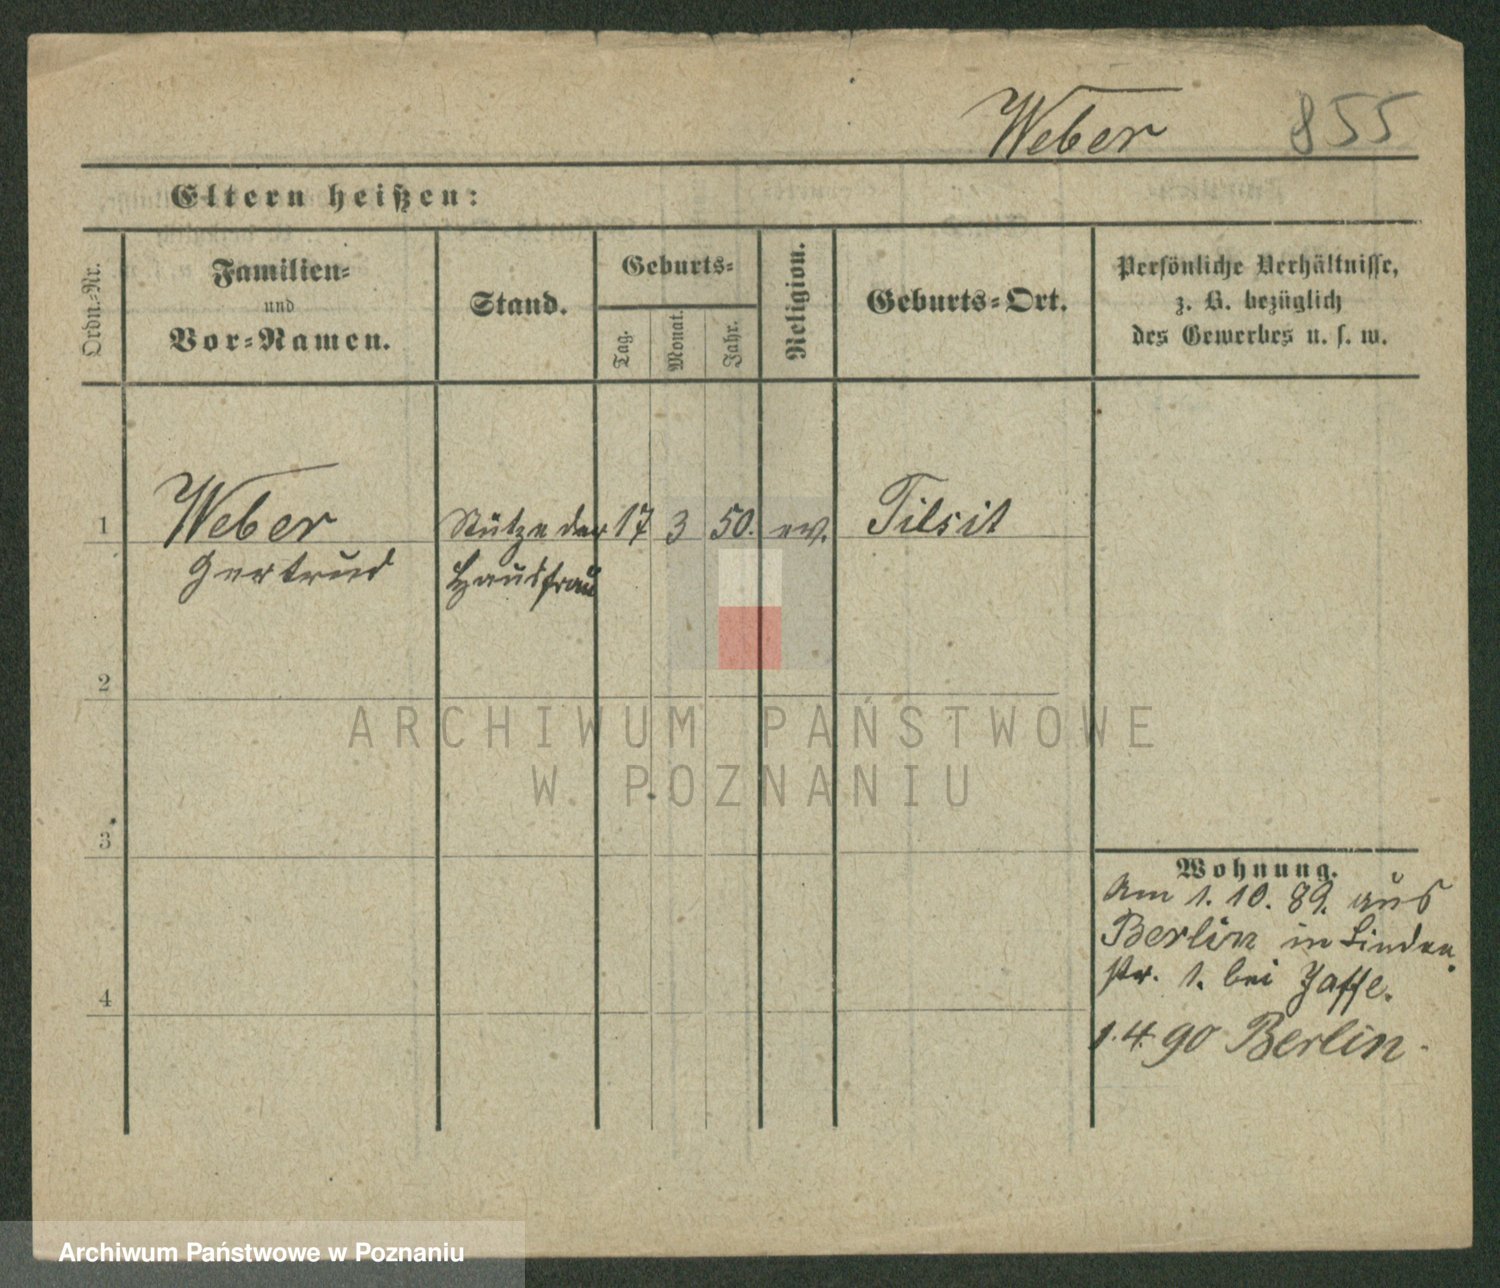 Weber 855
Eltern heißen:
Ordn.-Nr.
Familien-
und
Vor-Namen.
Stand.
Geburts-
Tag.
Monat.
Jahr.
Religion.
Geburts-Ort.
Persönliche Verhältnisse,
z. B. bezüglich
des Gewerbes u. s. w.
1 Weber Stütze der 17 3 50. ev. Tilsit
Gertrud Hausfrau
2
ARCHIWUM PAŃSTWOWE
W POZNANIU
3
Wohnung.
Am 1. 10. 89. aus
Berlin in Linden
str. 1. bei Jaffe.
4
1. 4. 90 Berlin.
Archiwum Państwowe w Poznaniu